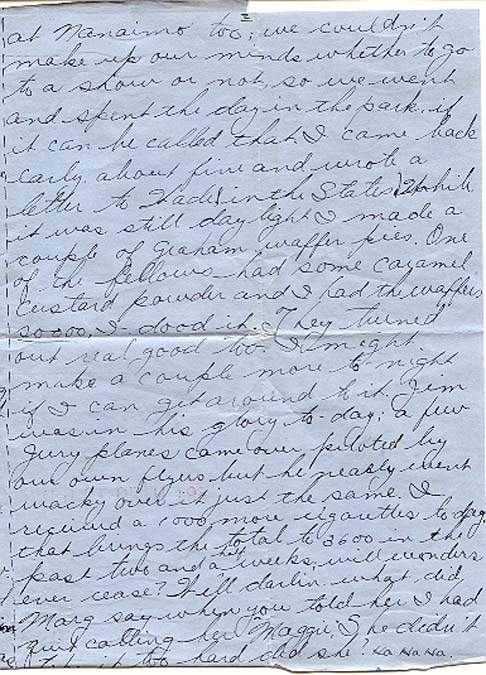 II
at Nanaimo too; we couldn't
make up our minds whether to go
to a show or not, so we went
and spent the day in the park, if
it can be called that. I came back
early about five and wrote a
letter to in the States. While
it was still daylight I made a
couple of Graham waffer pies. One
of the fellows had some caramel
custard powder and I had the waffers
soooo, I dood it. They turned
out real good too. I might
make a couple more to-night
if I can get around to it. Jim
was in his glory to-day; a few
Jerry planes came over, piloted by
our own flyers but he nearly went
wacky over it just the same. I
received a 1000 more cigarettes to-day,
that brings the total to 3600 in the
past two and a half weeks, will wonders
ever cease? Well darlin what did
Marg say when you told her I had
quit calling her "Maggie", She didn't
it too hard did she? Ha Ha Ha.